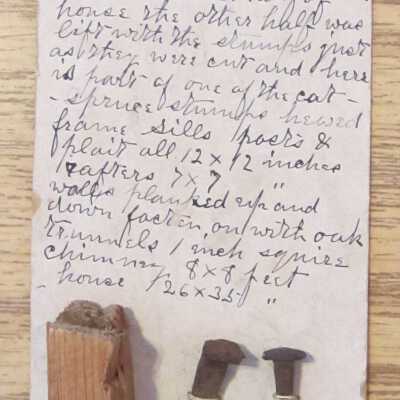 house the other half was
left with the stumps just
as they were cut and here
is part of one of the cat-
- spruce stumps hewed
frame sills posts &
plait all 12 x 12 inches
rafters 7 x 7 "
walls planked up and
down fasten, on with oak
trunnels 1 inch squire
chimney 8 x 8 feet
- house 26 x 35 "